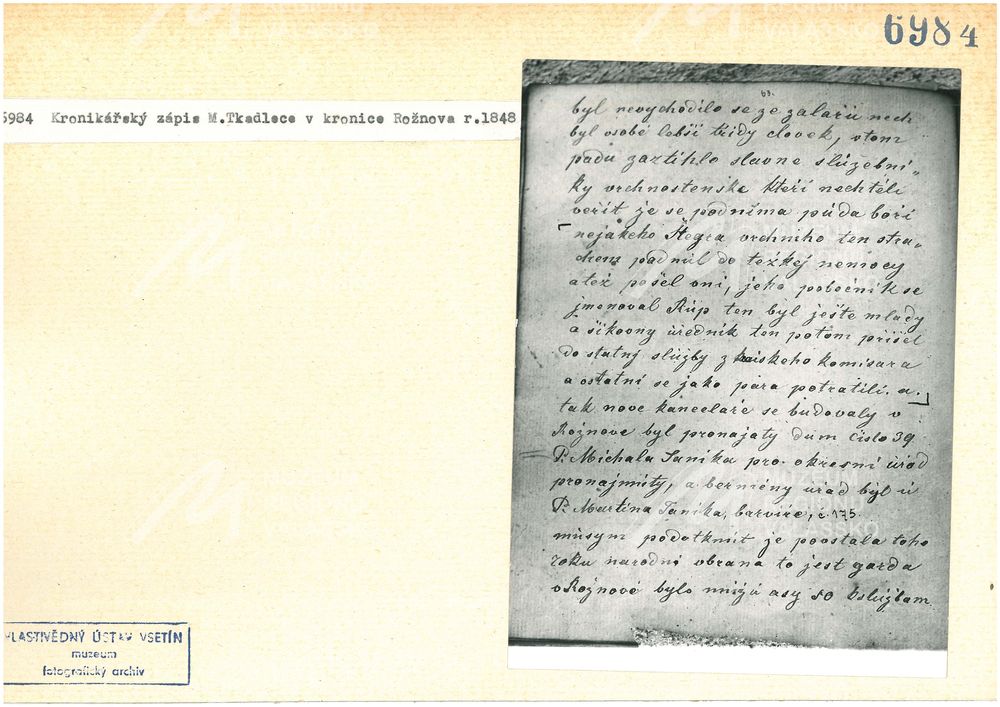 6984
5984 Kronikářský zápis M.Tkadlece v kronice Rožnova r.1848
63.
byl nevychodilo se ze zalařů nech
byl osobě lebší třidy človek, vtom
padu zartihlo slavne služebni„
ky vrchnostenske kteří nechtěli
veřit že se podnima půda boři
nejakeho Štegra vrchniho ten stra„
chem padnul do težkej nemocy
a též pošel oni, jeho pobočnik se
jmenoval Rúp ten byl ješte mlady
a šikovny úřednik ten potom přišel
do statnj služby z kraiskeho komisara
a ostatni se jako para potratili. a.
tak nove kancelaře se budovaly v
Rožnove byl pronajaty dum čislo 39
P. Michala Janika pro okresni úřad
pronajmity, a berničny úřad byl u
P. Martina Janika, barviře, č. 175.
musym podotknut že poostala toho
roku narodni obrana to jest garda
v Rožnově bylo mužů asy 50 k službam
VLASTIVĚDNÝ ÚSTAV VSETÍN
muzeum
fotografický archiv